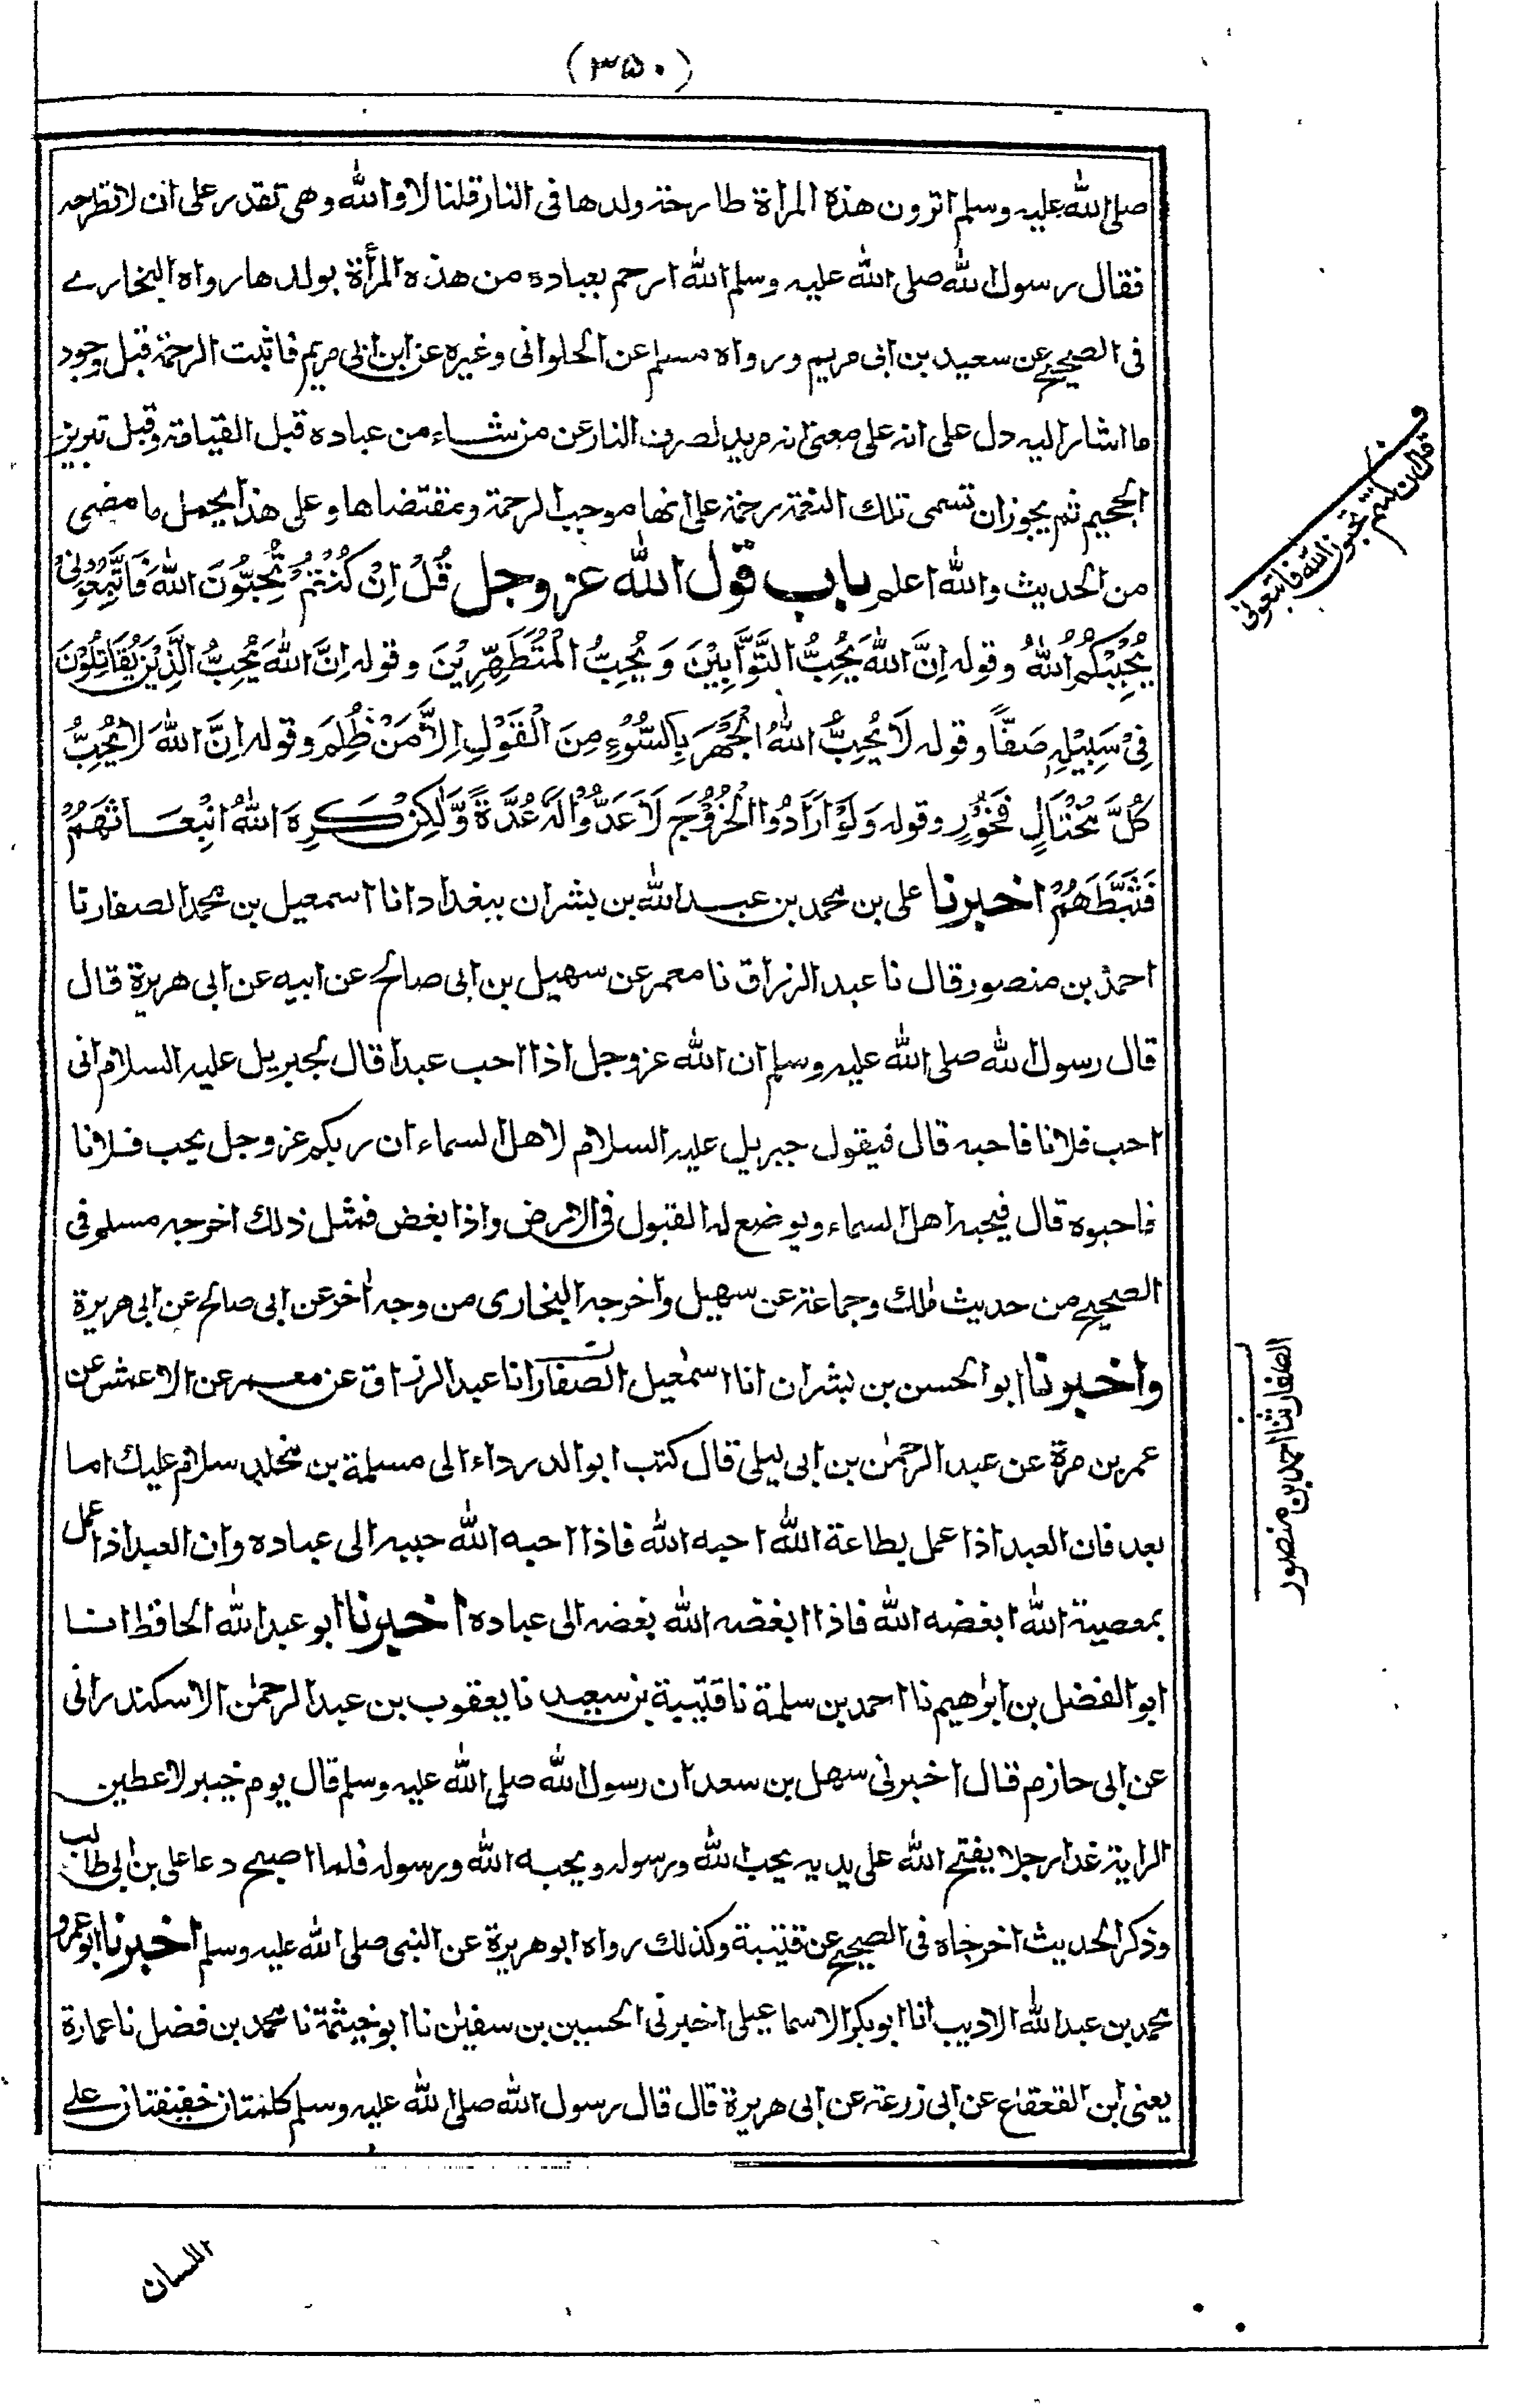 (۳۵۰)
صلى الله عليه وسلم اترون هذه المرأة طارحة ولدها فى النار قلنا لا والله وهى تقدر على ان لا تطرحه
فقال رسول الله صلى الله عليه وسلم الله ارحم بعباده من هذه المرأة بولدها رواه البخارے
فى الصحيح عن سعيد بن ابى مريم ورواه مسلم عن الحلوانى وغيره عن ابن ابى مريم فاثبت الرحمة قبل وجود
ما اشار اليه دل على انه على معنى انه مريد لصرف النار عن من شاء من عباده قبل القيامة وقبل تبريز
الجحيم ثم يجوز ان تسمى تلك النعمة رحمة على انها موجب الرحمة ومقتضاها وعلى هذا يحمل ما مضى
من الحديث والله اعلم باب قول الله عز وجل قُلْ اِنْ كُنْتُمْ تُحِبُّوْنَ اللهَ فَاتَّبِعُوْنِىْ
يُحْبِبْكُمُ اللهُ وقوله اِنَّ اللهَ يُحِبُّ التَّوَّابِيْنَ وَيُحِبُّ الْمُتَطَهِّرِيْنَ وقوله اِنَّ اللهَ يُحِبُّ الَّذِيْنَ يُقَاتِلُوْنَ
فِىْ سَبِيْلِهٖ صَفًّا وقوله لَا يُحِبُّ اللهُ الْجَهْرَ بِالسُّوْءِ مِنَ الْقَوْلِ اِلَّا مَنْ ظُلِمَ وقوله اِنَّ اللهَ لَا يُحِبُّ
كُلَّ مُخْتَالٍ فَخُوْرٍ وقوله وَلَوْ اَرَادُوا الْخُرُوْجَ لَاَعَدُّوْا لَهٗ عُدَّةً وَّلٰكِنْ كَرِهَ اللهُ انْبِعَاثَهُمْ
فَثَبَّطَهُمْ اخبرنا على بن محمد بن عبد الله بن بشران ببغداد انا اسمعيل بن محمد الصفار نا
احمد بن منصور قال نا عبد الرزاق نا معمر عن سهيل بن ابى صالح عن ابيه عن ابى هريرة قال
قال رسول الله صلى الله عليه وسلم ان الله عز وجل اذا احب عبدا قال لجبريل عليه السلام انى
احب فلانا فاحبه قال فيقول جبريل عليه السلام لاهل السماء ان ربكم عز وجل يحب فلانا
فاحبوه قال فيحبه اهل السماء ويوضع له القبول فى الارض واذا بغض فمثل ذلك اخرجه مسلم فى
الصحيح من حديث مٰلك وجماعة عن سهيل واخرجه البخارى من وجه اٰخر عن ابى صالح عن ابى هريرة
واخبرنا ابو الحسن بن بشران انا اسمٰعيل الصفار انا عبد الرزاق عن معمر عن الاعمش عن
عمر بن مرة عن عبد الرحمٰن بن ابى ليلى قال كتب ابو الدرداء الى مسلمة بن مخلد سلام عليك اما
بعد فان العبد اذا عمل بطاعة الله احبه الله فاذا احبه الله حببه الى عباده وان العبد اذا عمل
بمعصية الله ابغضه الله فاذا ابغضه الله بغضه الى عباده اخبرنا ابو عبد الله الحافظ انا
ابو الفضل بن ابرٰهيم نا احمد بن سلمة نا قتيبة بن سعيد نا يعقوب بن عبد الرحمٰن الاسكندرانى
عن ابى حازم قال اخبرنى سهل بن سعد ان رسول الله صلى الله عليه وسلم قال يوم خيبر لاعطين
الراية غدا رجلا يفتح الله على يديه يحب الله ورسوله ويحبه الله ورسوله فلما اصبح دعا على بن ابى طالب
وذكر الحديث اخرجاه فى الصحيح عن قتيبة وكذلك رواه ابو هريرة عن النبى صلى الله عليه وسلم اخبرنا ابو عمرو
محمد بن عبد الله الاديب انا ابو بكر الاسماعيلى اخبرنى الحسين بن سفيٰن نا ابو خيثمة نا محمد بن فضل نا عمارة
يعنى ابن القعقاع عن ابى زرعة عن ابى هريرة قال قال رسول الله صلى الله عليه وسلم كلمتان خفيفتان علے
اللسان
ف
قل ان كنتم تحبون الله فاتبعونى
الصفار ثنا احمد بن منصور
ن